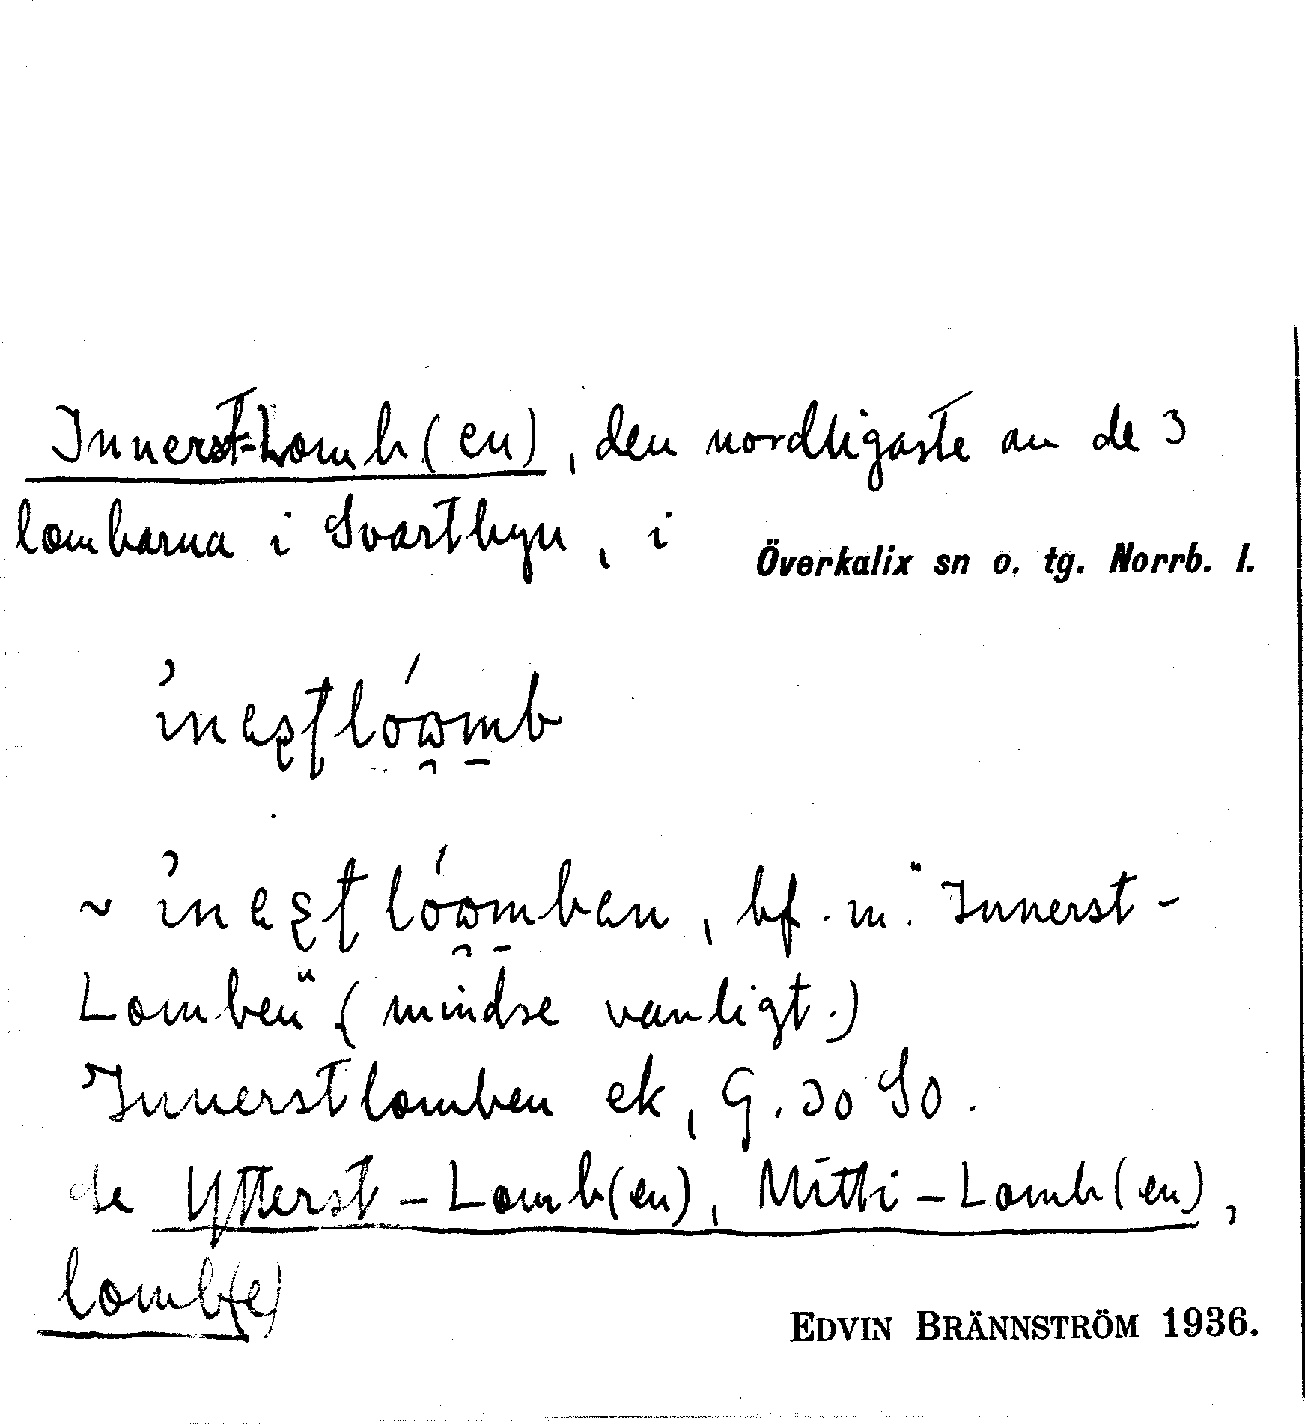 Innerst-Lomb(en), den nordligaste av de 3
lombarna i Svartbyn, i Överkalix sn o. tg. Norrb. l.
bf. m. "Innerst-
Lomben" (mindre vanligt.)
Innerstlomben ek, G. 30 SO.
de Ytterst-Lomb(en), Mitti-Lomb(en),
lomb(e)
EDVIN BRÄNNSTRÖM 1936.